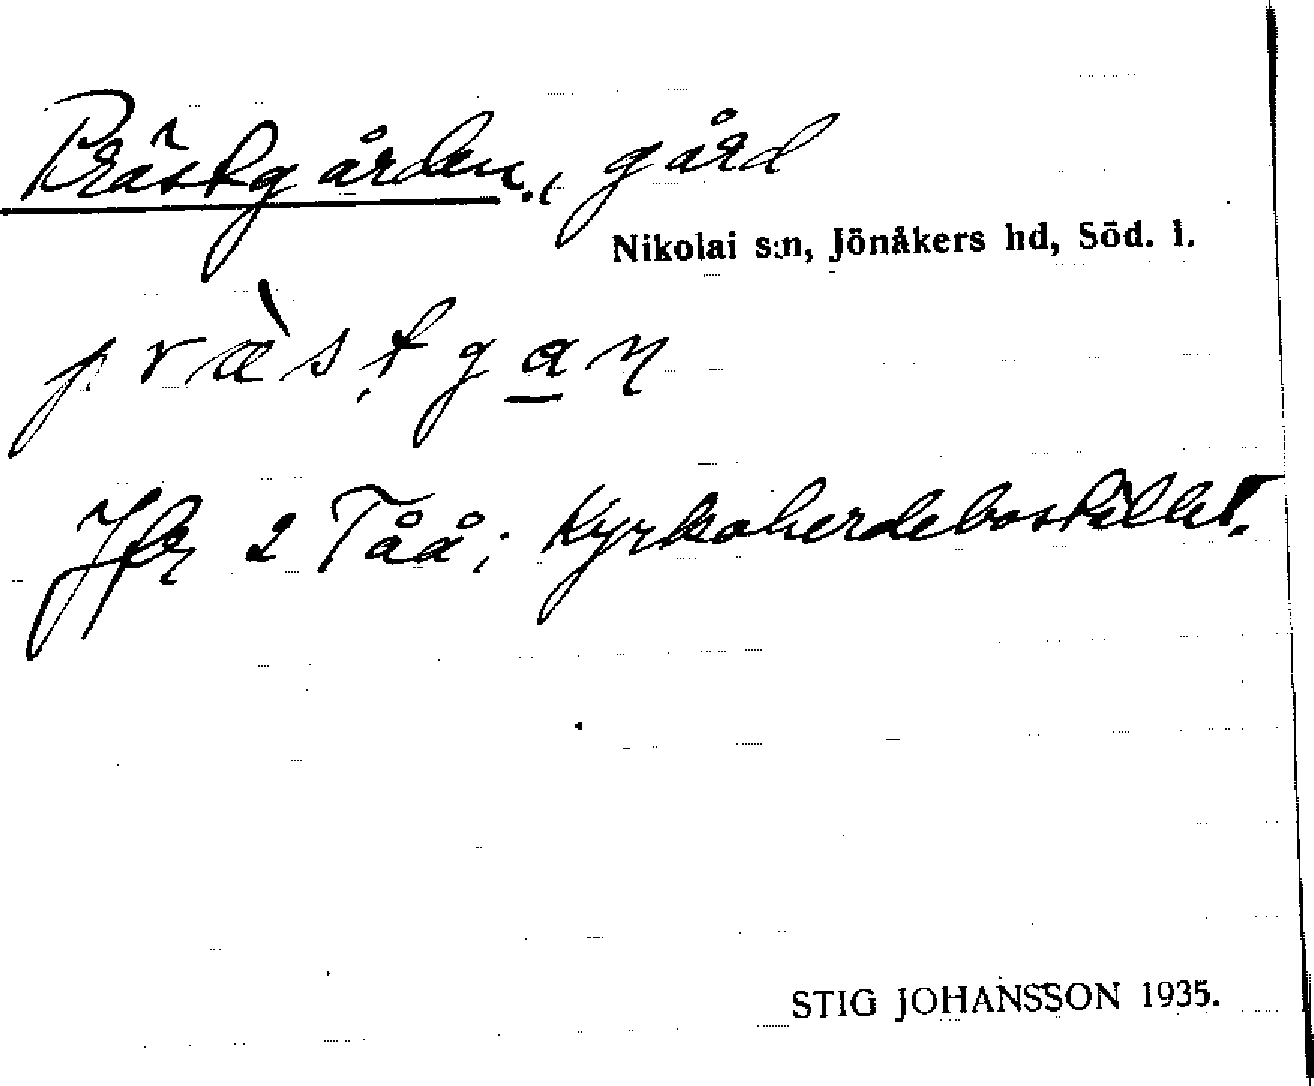 Prästgården, gård
Nikolai s:n, Jönåkers hd, Söd. l.
præ̀stga̲n
Jfr 2 Tåå; Kyrkoherdebostället.
STIG JOHANSSON 1935.